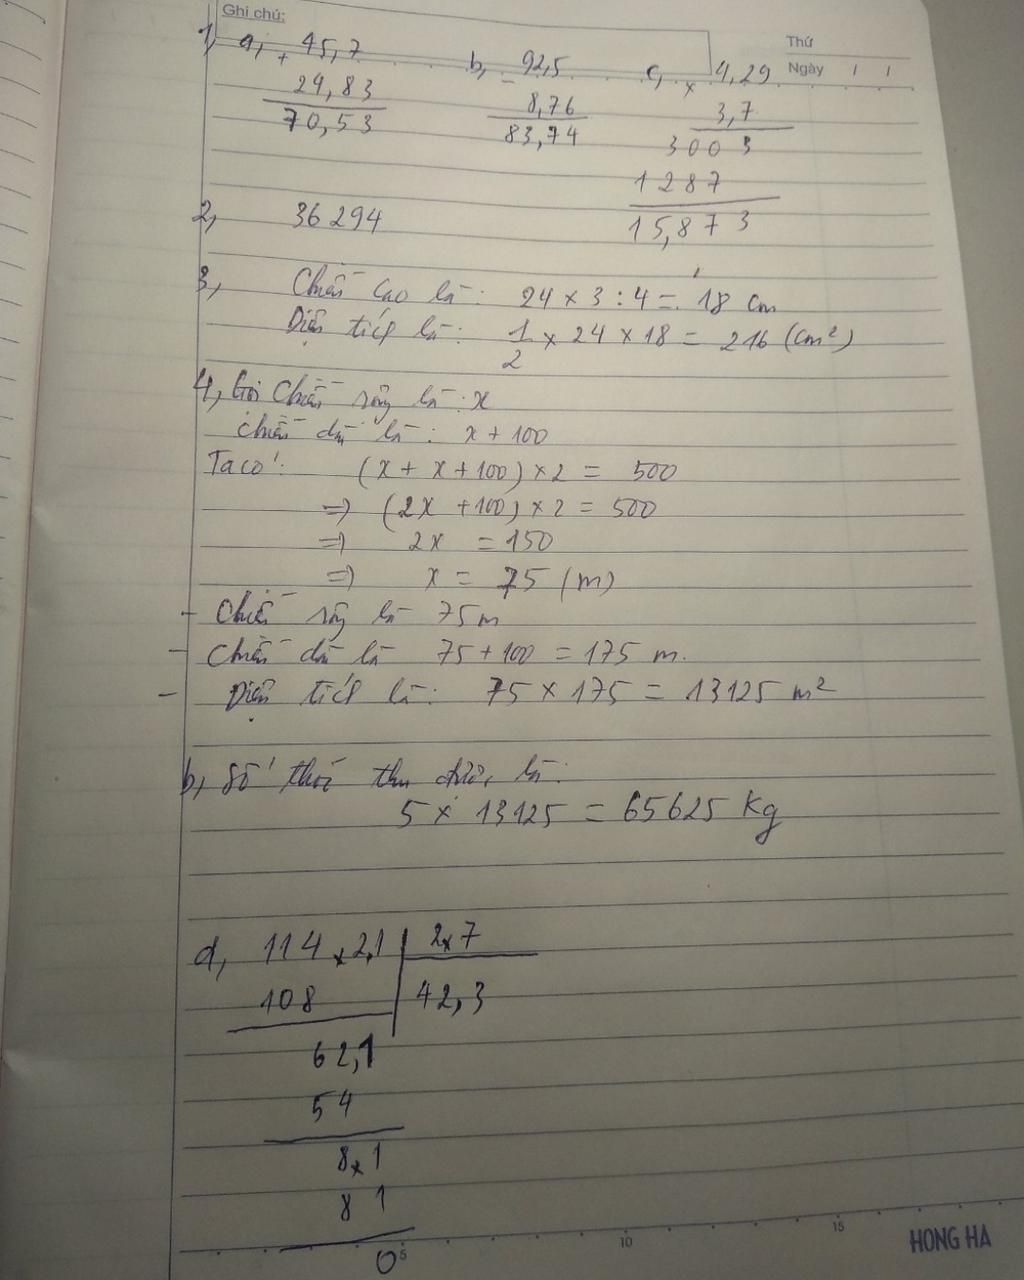 Ghi chú:
Thứ
Ngày / /
1, a, + 45,7
24,83
70,53
b, - 92,5
8,76
83,74
c, x 4,29
3,7
3003
1287
15,873
2, 36 294
3, Chiều cao là: 24 x 3 : 4 = 18 cm
Diện tích là: 1/2 x 24 x 18 = 216 (cm²)
4, Gọi chiều rộng là: x
chiều dài là: x + 100
Ta có: (x + x + 100) x 2 = 500
=> (2x + 100) x 2 = 500
=> 2x = 150
=> x = 75 (m)
- Chiều rộng là 75 m
- Chiều dài là 75 + 100 = 175 m.
- Diện tích là: 75 x 175 = 13125 m²
b, Số thóc thu được là:
5 x 13125 = 65625 Kg
d, 114x2,1 2x7
108 42,3
62,1
54
8x1
81
0
5 10 15
HONG HA